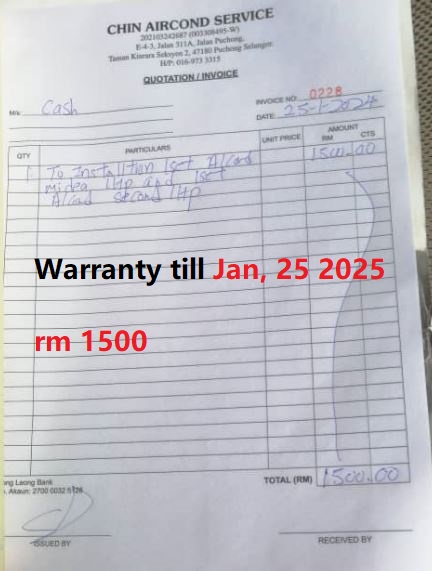 CHIN AIRCOND SERVICE
202103242687 (003308495-W)
E-4-3, Jalan 311A, Jalan Puchong,
Taman Kinrara Seksyen 2, 47180 Puchong Selangor.
H/P: 016-973 3315
QUOTATION / INVOICE
M/s: Cash
INVOICE NO: 0228
DATE: 25-1-2024
QTY PARTICULARS UNIT PRICE AMOUNT
RM CTS
1 To Installtion 1set A/Cond 1500.00
midea 1Hp and 1set
A/Cond Second 1Hp
Warranty till Jan, 25 2025
rm 1500
ong Leong Bank
Akaun: 2700 0032
TOTAL (RM) 1500.00
ISSUED BY RECEIVED BY